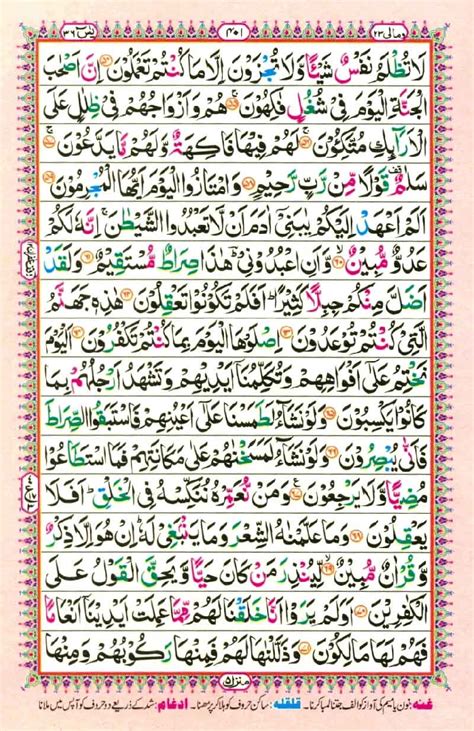 ومالی ۲۳
۴۰۱
یٰسٓ ۳۶
لَا تُظْلَمُ نَفْسٌ شَيْئًا وَّلَا تُجْزَوْنَ اِلَّا مَا كُنْتُمْ تَعْمَلُوْنَ ۝۵۴ اِنَّ اَصْحٰبَ
الْجَنَّةِ الْيَوْمَ فِيْ شُغُلٍ فٰكِهُوْنَ ۝۵۵ هُمْ وَاَزْوَاجُهُمْ فِيْ ظِلٰلٍ عَلَى
الْاَرَآىِٕكِ مُتَّكِـُٔوْنَ ۝۵۶ لَهُمْ فِيْهَا فَاكِهَةٌ وَّلَهُمْ مَّا يَدَّعُوْنَ ۝۵۷
سَلٰمٌ قَوْلًا مِّنْ رَّبٍّ رَّحِيْمٍ ۝۵۸ وَامْتَازُوا الْيَوْمَ اَيُّهَا الْمُجْرِمُوْنَ ۝۵۹
اَلَمْ اَعْهَدْ اِلَيْكُمْ يٰبَنِيْٓ اٰدَمَ اَنْ لَّا تَعْبُدُوا الشَّيْطٰنَ اِنَّهٗ لَكُمْ
عَدُوٌّ مُّبِيْنٌ ۝۶۰ وَّاَنِ اعْبُدُوْنِيْ هٰذَا صِرَاطٌ مُّسْتَقِيْمٌ ۝۶۱ وَلَقَدْ
اَضَلَّ مِنْكُمْ جِبِلًّا كَثِيْرًا اَفَلَمْ تَكُوْنُوْا تَعْقِلُوْنَ ۝۶۲ هٰذِهٖ جَهَنَّمُ
الَّتِيْ كُنْتُمْ تُوْعَدُوْنَ ۝۶۳ اِصْلَوْهَا الْيَوْمَ بِمَا كُنْتُمْ تَكْفُرُوْنَ ۝۶۴ اَلْيَوْمَ
نَخْتِمُ عَلٰٓى اَفْوَاهِهِمْ وَتُكَلِّمُنَآ اَيْدِيْهِمْ وَتَشْهَدُ اَرْجُلُهُمْ بِمَا
كَانُوْا يَكْسِبُوْنَ ۝۶۵ وَلَوْ نَشَآءُ لَطَمَسْنَا عَلٰٓى اَعْيُنِهِمْ فَاسْتَبَقُوا الصِّرَاطَ
فَاَنّٰى يُبْصِرُوْنَ ۝۶۶ وَلَوْ نَشَآءُ لَمَسَخْنٰهُمْ عَلٰى مَكَانَتِهِمْ فَمَا اسْتَطَاعُوْا
مُضِيًّا وَّلَا يَرْجِعُوْنَ ۝۶۷ وَمَنْ نُّعَمِّرْهُ نُنَكِّسْهُ فِي الْخَلْقِ اَفَلَا
يَعْقِلُوْنَ ۝۶۸ وَمَا عَلَّمْنٰهُ الشِّعْرَ وَمَا يَنْۢبَغِيْ لَهٗ اِنْ هُوَ اِلَّا ذِكْرٌ
وَّقُرْاٰنٌ مُّبِيْنٌ ۝۶۹ لِّيُنْذِرَ مَنْ كَانَ حَيًّا وَّيَحِقَّ الْقَوْلُ عَلَى
الْكٰفِرِيْنَ ۝۷۰ اَوَلَمْ يَرَوْا اَنَّا خَلَقْنَا لَهُمْ مِّمَّا عَمِلَتْ اَيْدِيْنَآ اَنْعَامًا
فَهُمْ لَهَا مٰلِكُوْنَ ۝۷۱ وَذَلَّلْنٰهَا لَهُمْ فَمِنْهَا رَكُوْبُهُمْ وَمِنْهَا
منزل ۵
غنہ: نون یا میم کی آواز کو الف جتنا لمبا کرنا۔ قلقلہ: ساکن حروف کو ہلا کر پڑھنا۔ ادغام: شد کے ذریعے دو حروف کو آپس میں ملانا